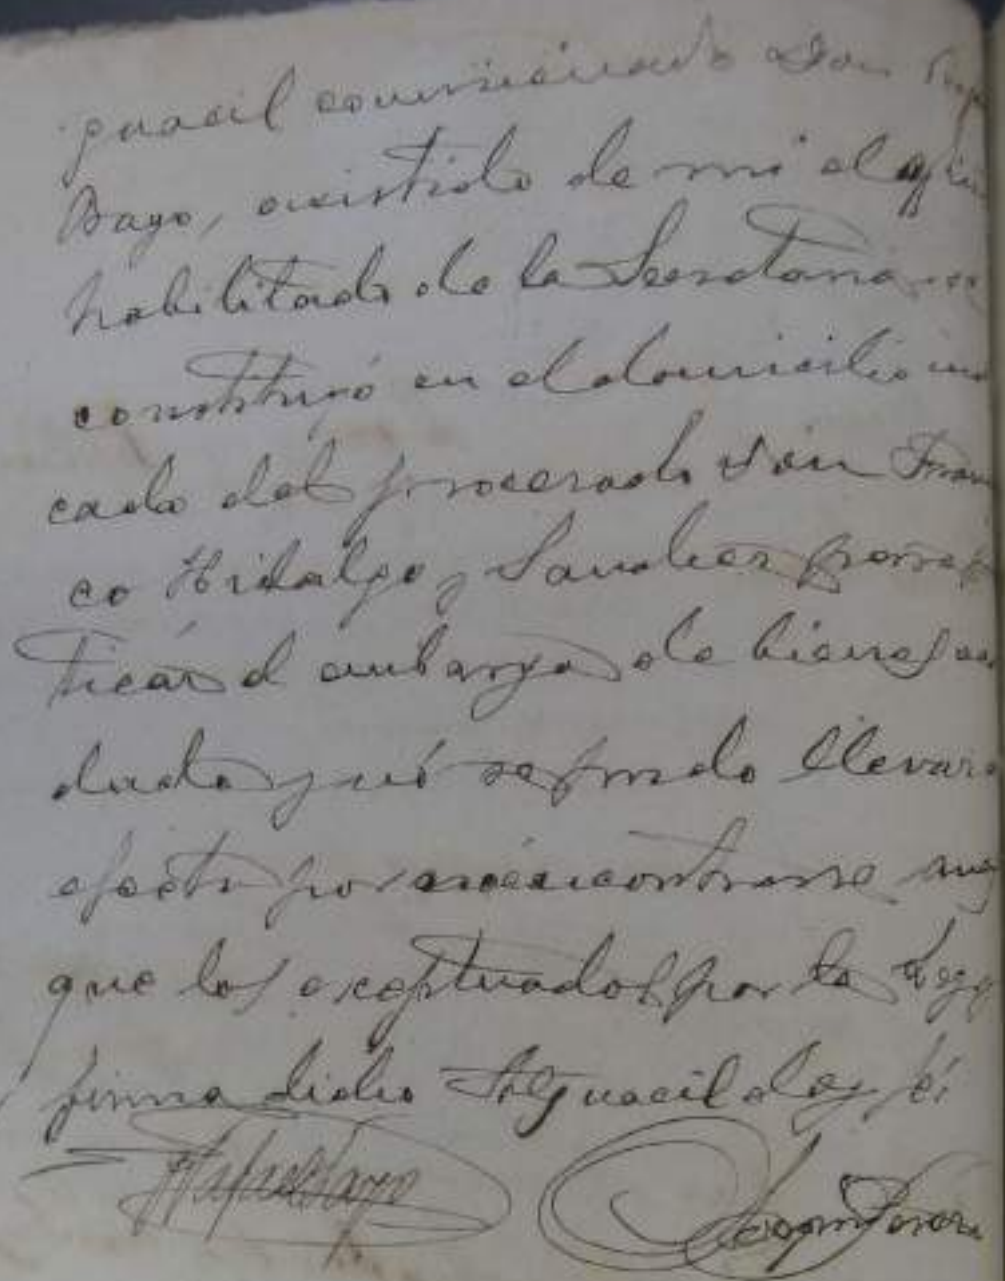 guacil comisionado Don
Bayo, asistido de mi el
habilitado de la Secretaria se
constituyó en el domicilio in
cado del procesado Don Fran
co Hidalgo y Sanchez para
ticar el embargo de bienes
dado y nó se pudo llevar a
efecto por no encontrarse
que los exceptuados por la Ley y
firma dicho Alguacil doy fé
Rafael Bayo